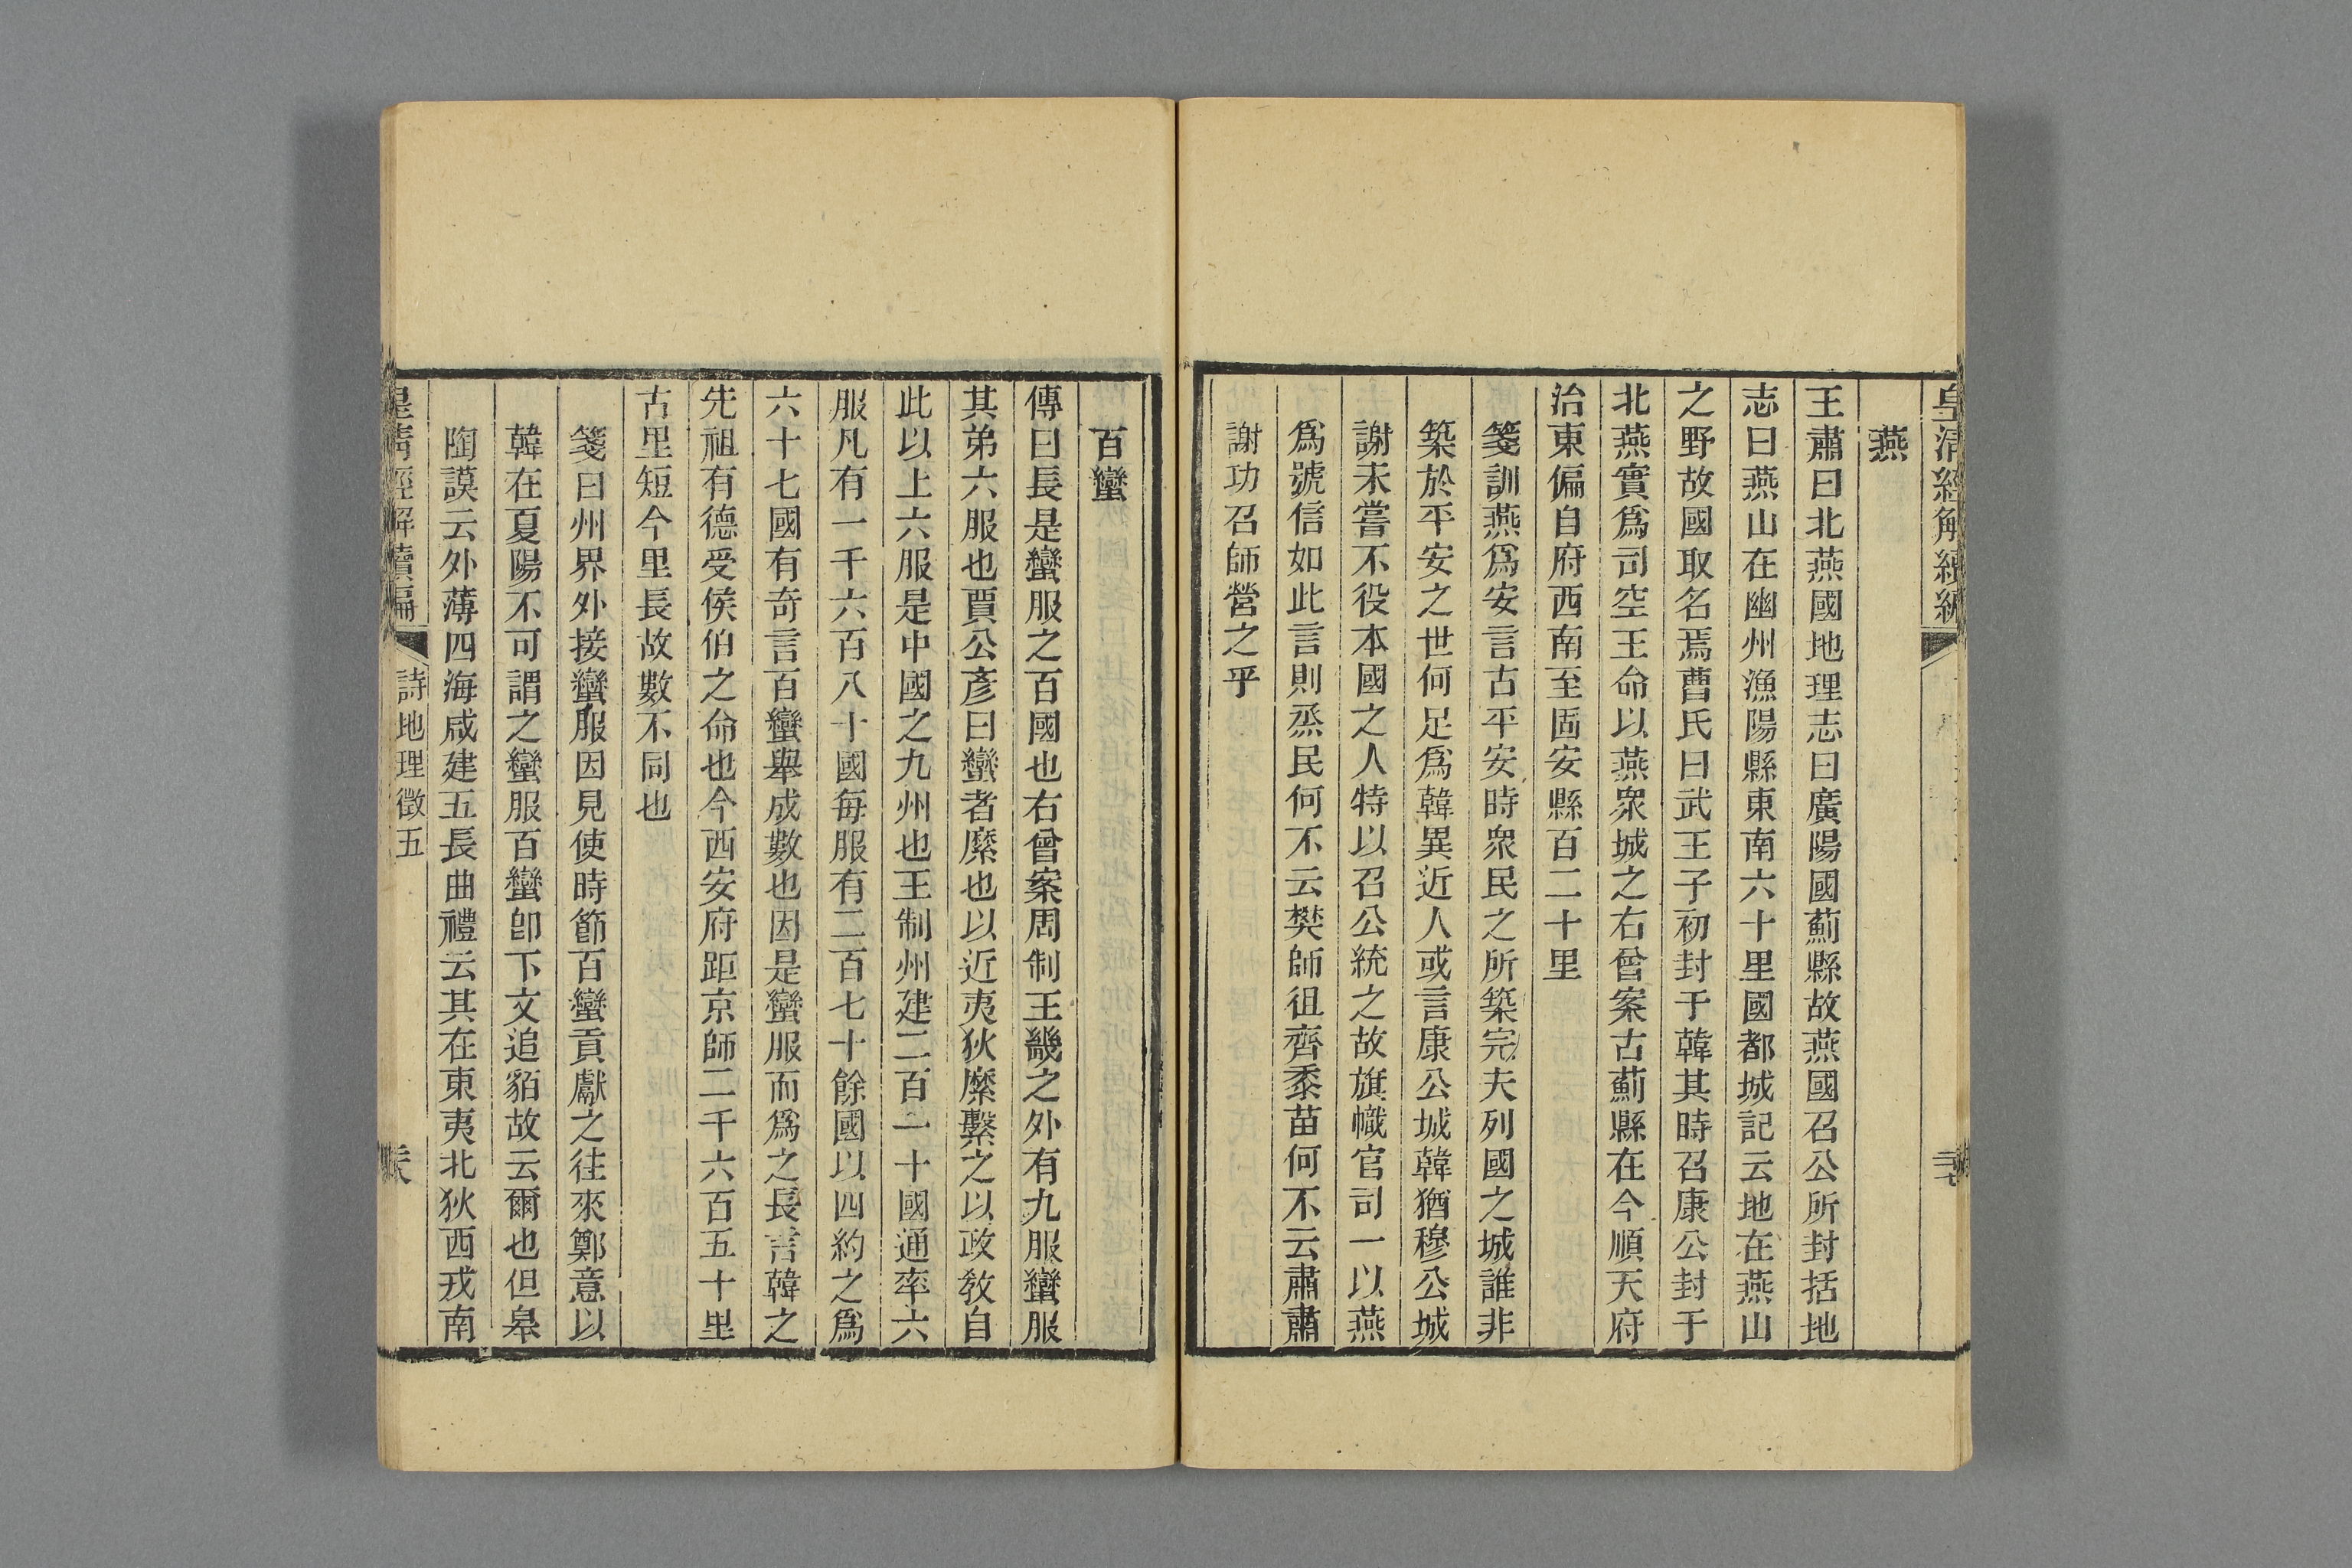 皇清經解續編
燕
王肅曰北燕國地理志曰廣陽國薊縣故燕國召公所封括地
志曰燕山在幽州漁陽縣東南六十里國都城記云地在燕山
之野故國取名焉曹氏曰武王子初封于韓其時召康公封于
北燕實爲司空王命以燕衆城之右曾案古薊縣在今順天府
治東偏自府西南至固安縣百二十里
箋訓燕爲安言古平安時衆民之所築完夫列國之城誰非
築於平安之世何足爲韓異近人或言康公城韓猶穆公城
謝未嘗不役本國之人特以召公統之故旗幟官司一以燕
爲號信如此言則烝民何不云樊師徂齊黍苗何不云肅肅
謝功召師營之乎
百蠻
傳曰長是蠻服之百國也右曾案周制王畿之外有九服蠻服
其弟六服也賈公彥曰蠻者縻也以近夷狄縻繫之以政敎自
此以上六服是中國之九州也王制州建二百一十國通率六
服凡有一千六百八十國每服有二百七十餘國以四約之爲
六十七國有奇言百蠻舉成數也因是蠻服而爲之長言韓之
先祖有德受侯伯之命也今西安府距京師二千六百五十里
古里短今里長故數不同也
箋曰州界外接蠻服因見使時節百蠻貢獻之往來鄭意以
韓在夏陽不可謂之蠻服百蠻卽下文追貊故云爾也但皋
陶謨云外薄四海咸建五長曲禮云其在東夷北狄西戎南
皇淸經解續編
詩地理徵五